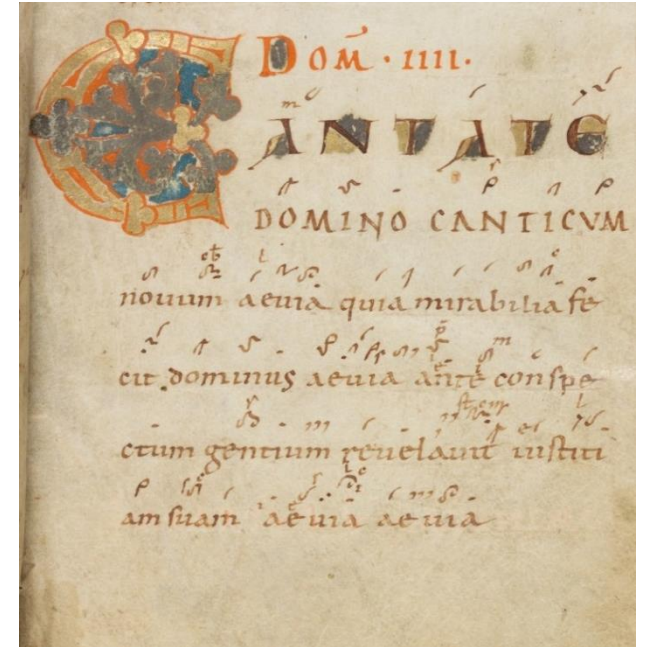 DOM̅ · IIII ·
CANTATE
DOMINO CANTICVM
nouum aeuia quia mirabilia fe
cit dominus aeuia ante conspe
ctum gentium reuelauit iustiti
am suam aeuia aeuia